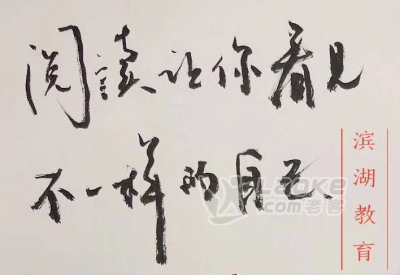 阅读让你看见
不一样的自己
滨湖教育
Laoke.com 老客